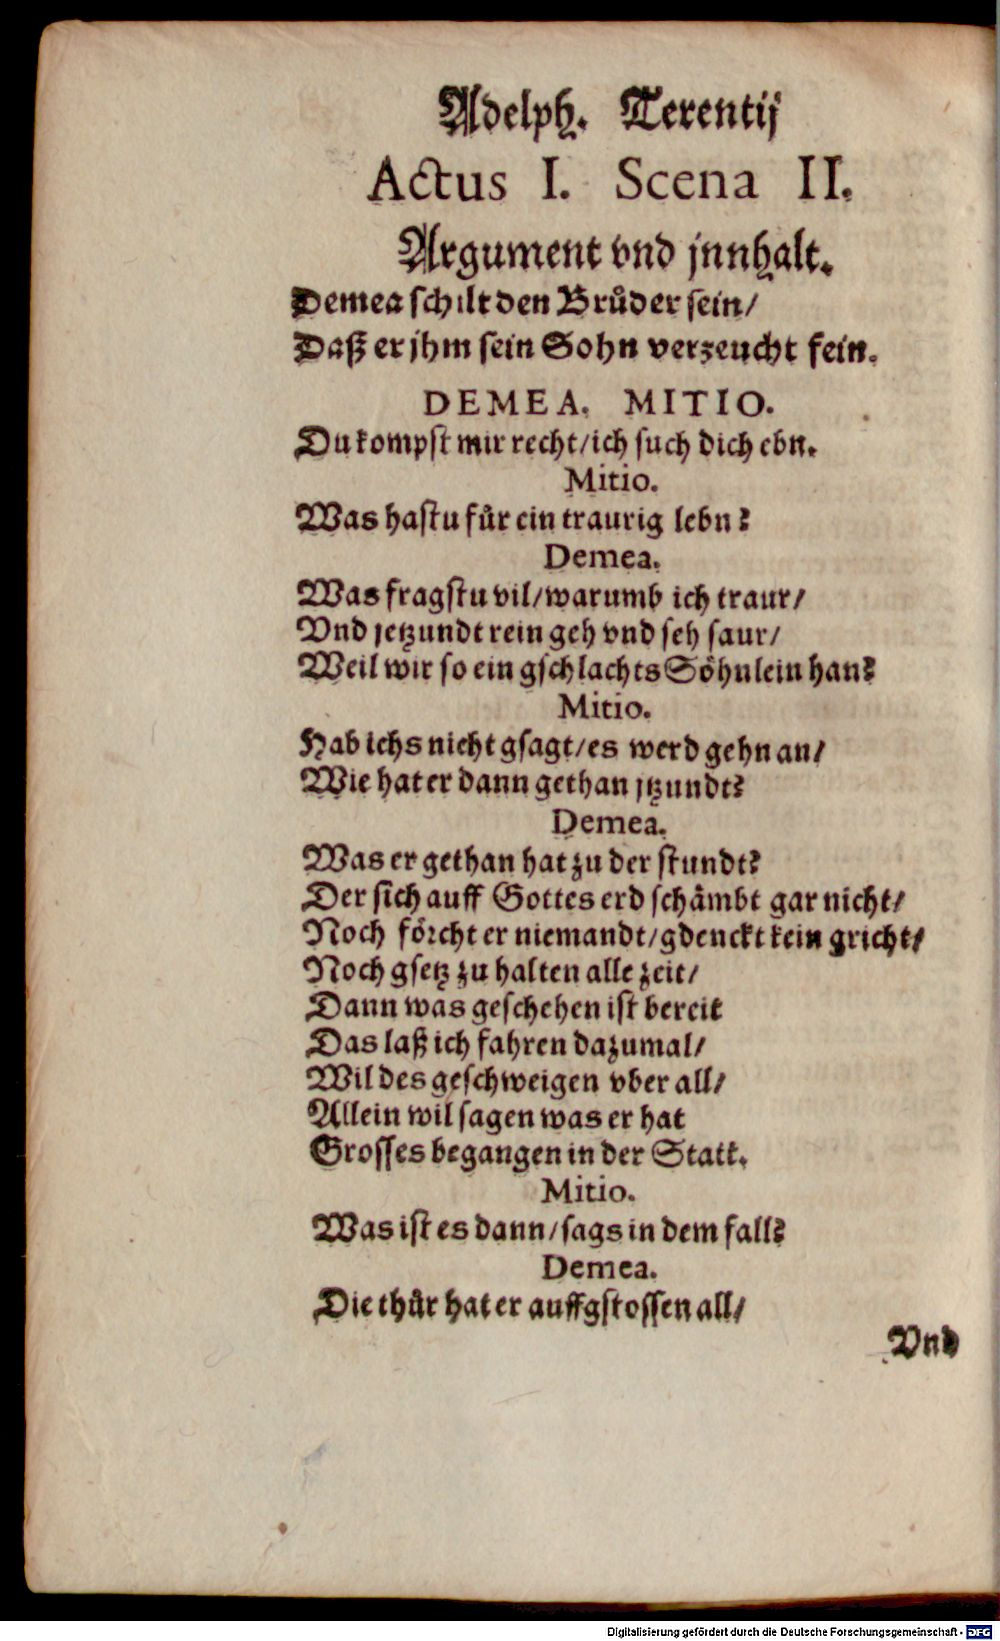 Adelph. Terentij
Actus I. Scena II.
Argument vnd jnnhalt.
Demea schilt den Bruͤder sein/
Daß er jhm sein Sohn verzeucht fein.
DEMEA. MITIO.
Du kompst mir recht/ich such dich ebn.
Mitio.
Was hastu fuͤr ein traurig lebn?
Demea.
Was fragstu vil/warumb ich traur/
Vnd jetzundt rein geh vnd seh saur/
Weil wir so ein gschlachts Soͤhnlein han?
Mitio.
Hab ichs nicht gsagt/es werd gehn an/
Wie hat er dann gethan jtzundt?
Demea.
Was er gethan hat zu der stundt?
Der sich auff Gottes erd schaͤmbt gar nicht/
Noch foͤrcht er niemandt/gdenckt kein gricht/
Noch gsetz zu halten alle zeit/
Dann was geschehen ist bereit
Das laß ich fahren dazumal/
Wil des geschweigen vber all/
Allein wil sagen was er hat
Grosses begangen in der Statt.
Mitio.
Was ist es dann/sags in dem fall?
Demea.
Die thuͤr hat er auffgstossen all/
Vnd
Digitalisierung gefördert durch die Deutsche Forschungsgemeinschaft - DFG